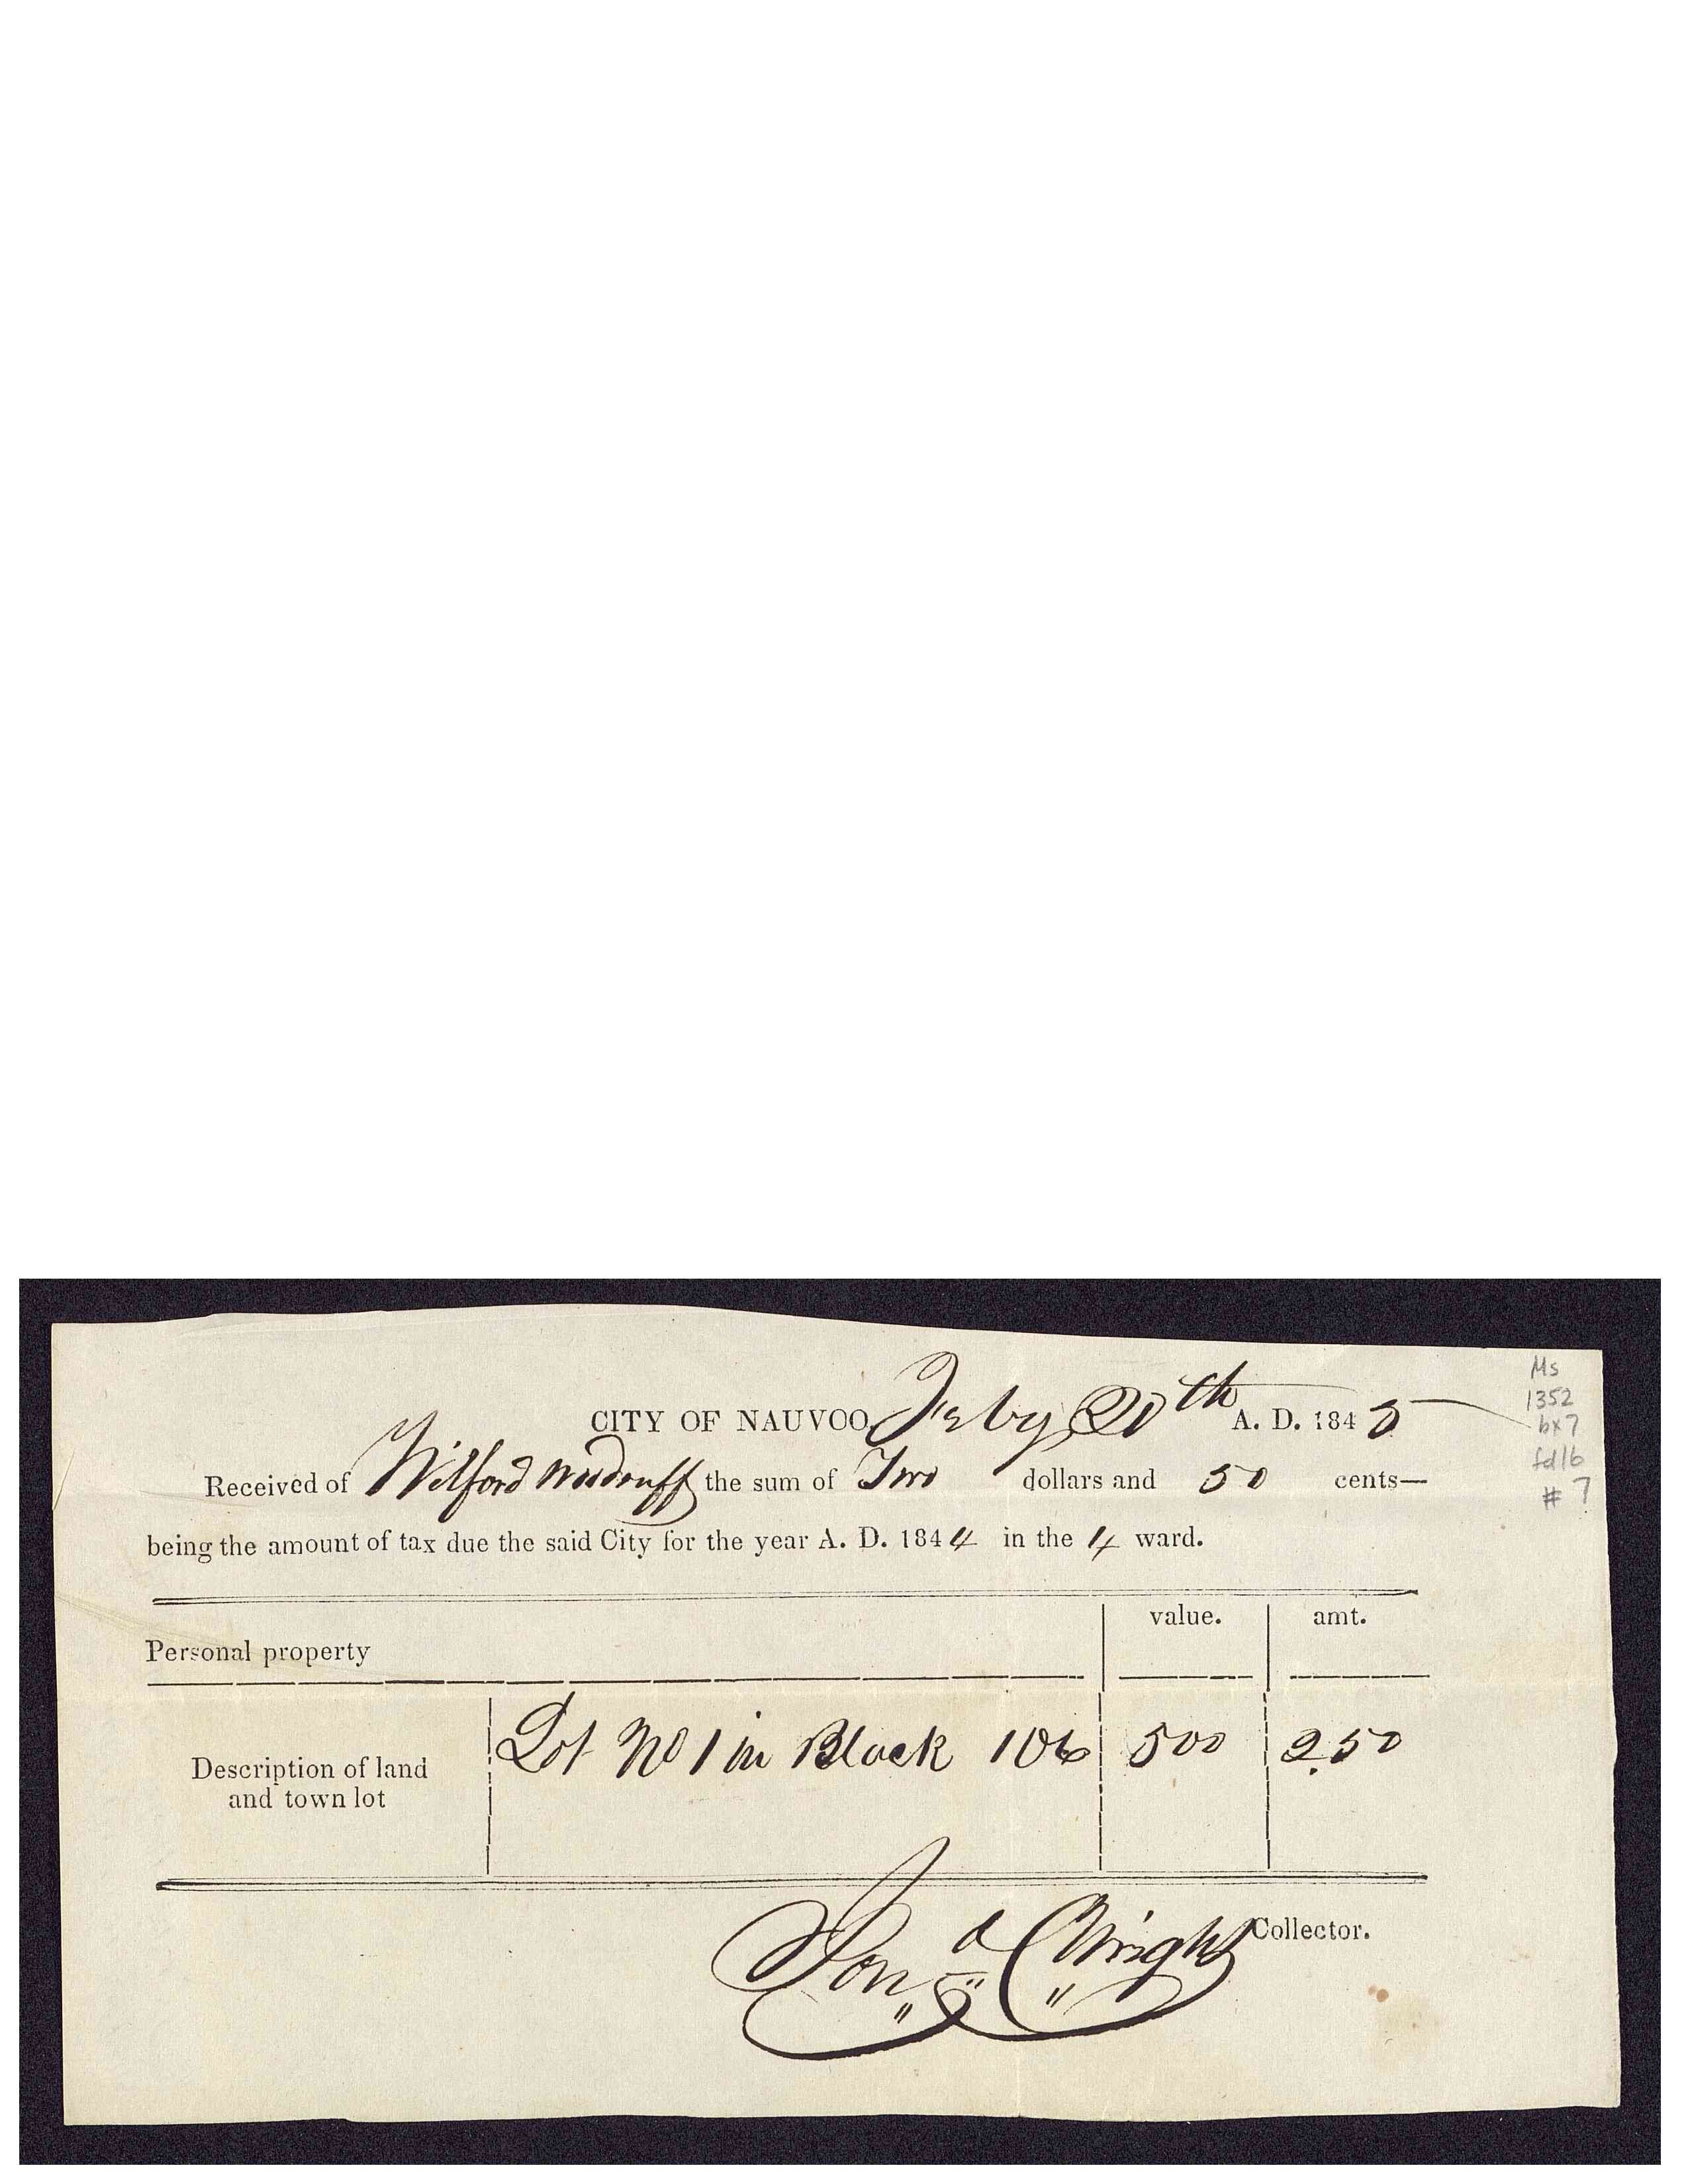 CITY OF NAUVOO, Feby 20th A. D. 1845
Received of Wilford Woodruff the sum of Two dollars and 50 cents—
being the amount of tax due the said City for the year A. D. 1844 in the 4 ward.
value. amt.
Personal property
Lot No 1 in Block 106 500 2.50
Description of land
and town lot
Jonᵃ C Wright Collector.
Ms
1352
bx7
fd16
# 7